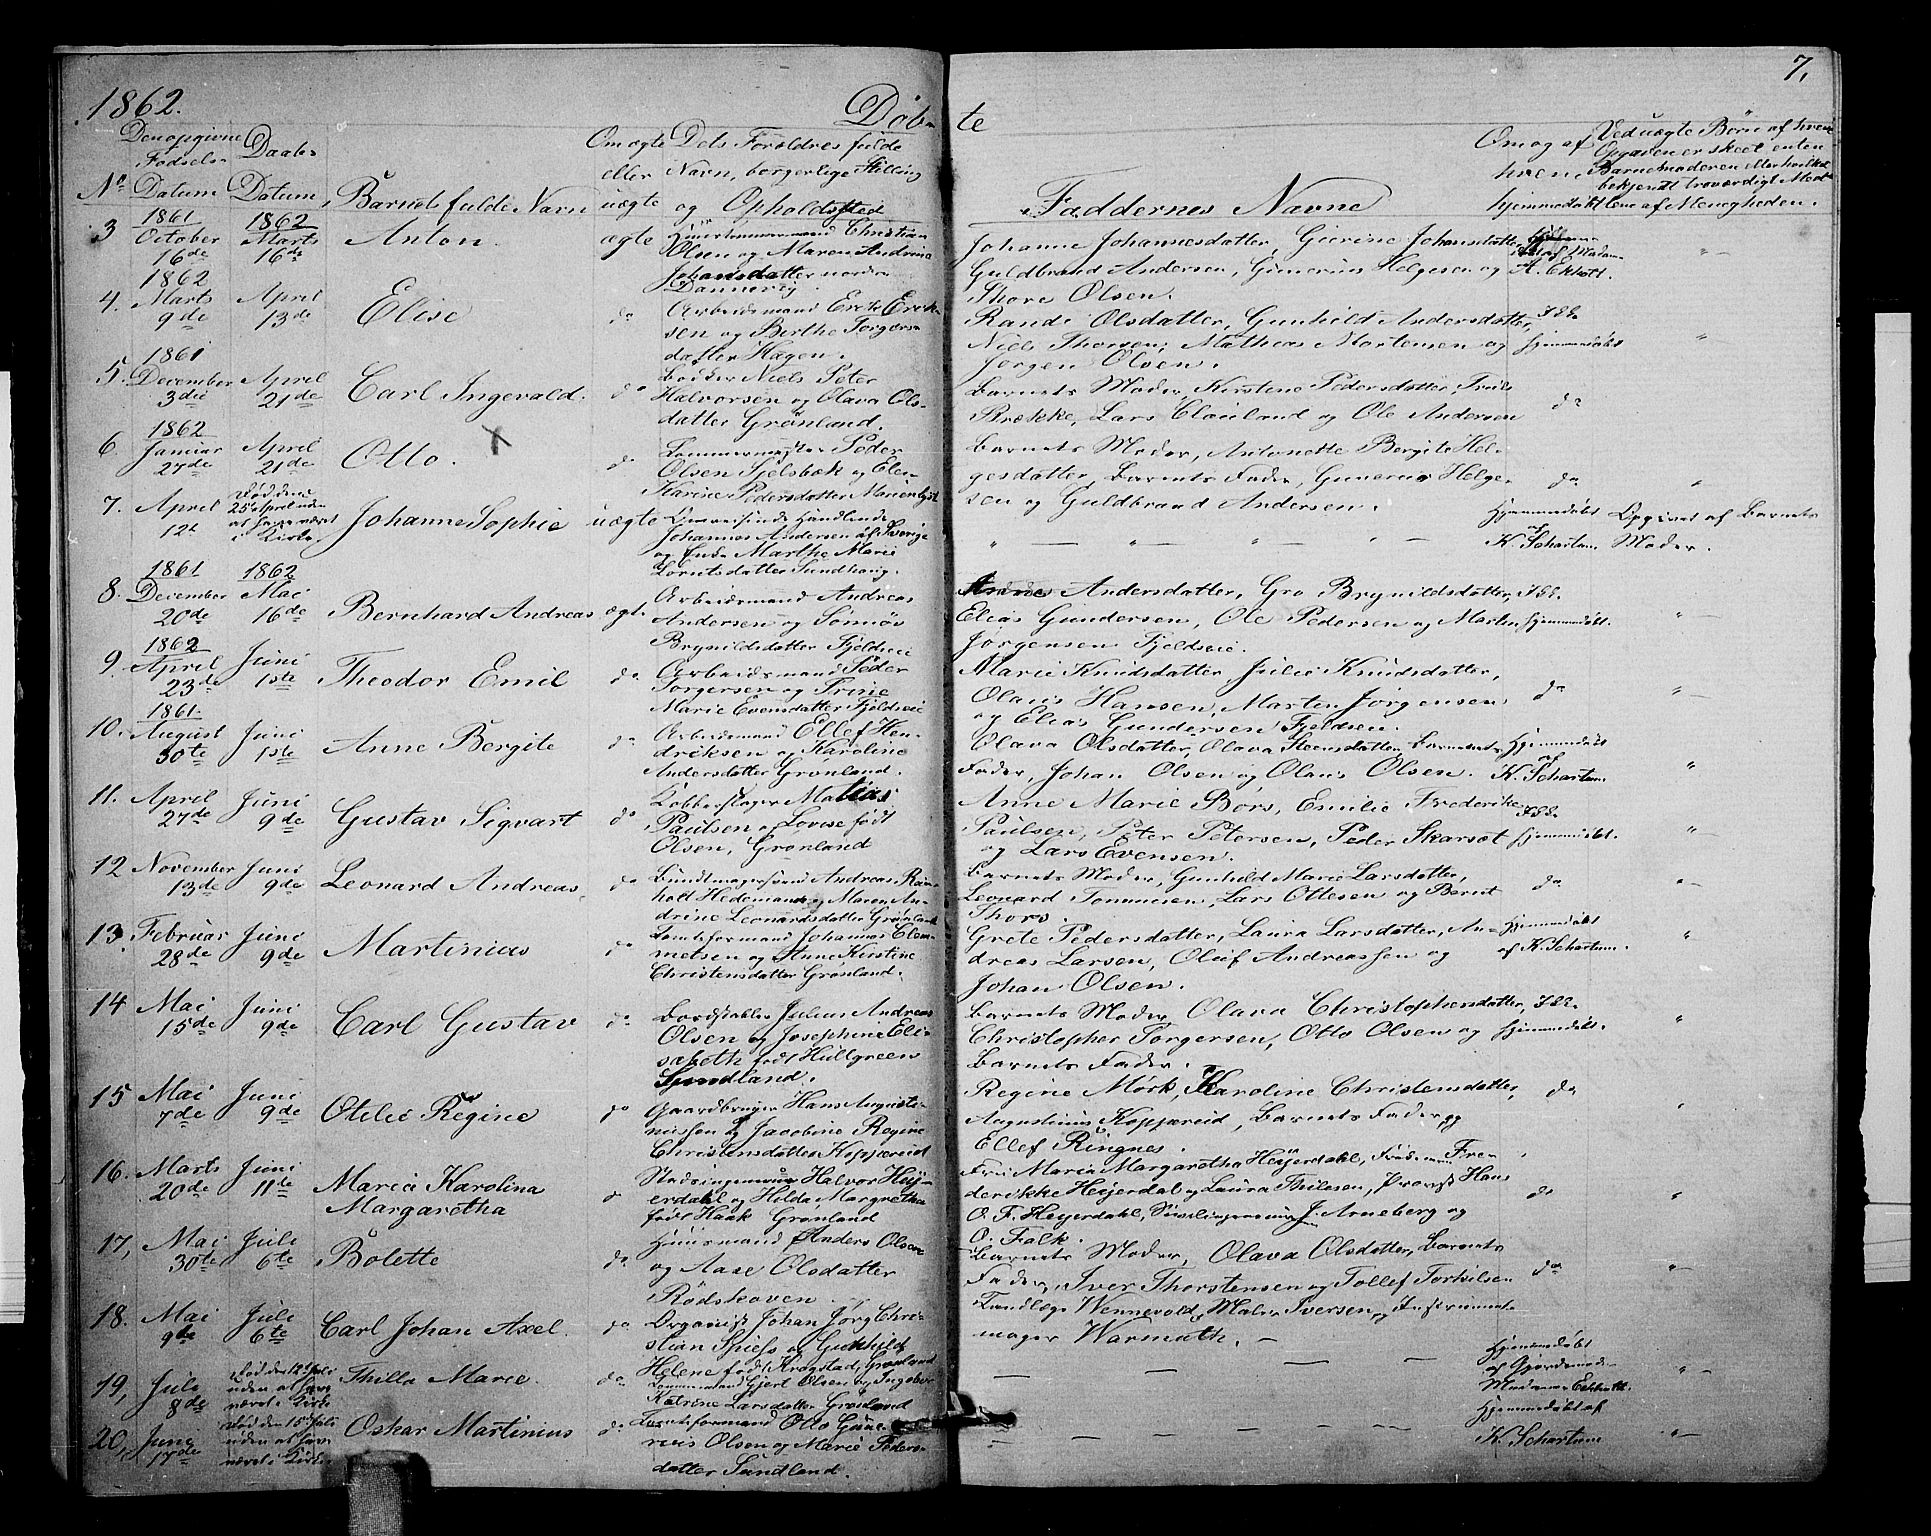 1862.
Døb-
te
7,
Den opgivne Fødsels- Datum
Daabs- Datum
No
Barnets fulde Navn
Om ægte eller uægte
Dets Forældres fulde Navn, borgerlige Stilling og Opholdssted
Faddernes Navne
Om og af hvem hjemmedøbt
Ved uægte Børn af hvem Opgaven er skeet enten Barnemoderen eller hvilket bekjendt troværdigt Medlem af Menigheden.
3 1861 October 16de
1862 Marts 16de
Anton.
ægte
Christian
Olsen og Maren Andrine
Johansdatter nordre
Dannevig.
Johanne Johannesdatter, Gurine Johansdatter,
Guldbrand Andersen, Gunerius Helgesen og
Thore Olsen.
af Madam
A. Ekholt.
4. 1862 Marts 9de
April 13de
Elise
do
Arbeidsmand Erik Erik-
sen og Berthe Torgers-
datter Hagen.
Randi Olsdatter, Gunhild Andersdatter,
Niels Thorsen, Mathias Mortensen og
Jørgen Olsen.
Ikke
hjemmedøbt
5. 1861 December 3die
April 21de
Carl Ingevald.
do
Bødker Niels Peter
Halvorsen og Olava Ols-
datter Grønland.
Barnets Moder, Kirstine Pedersdatter,
Brække, Lars Clauland og Ole Andersen
do
6. 1862 Januar 27de
April 21de
Otto.
do
Lommermester Peder
Olsen Tjelsbæk og Elen
Karine Pedersdatter Marienlyst
Barnets Moder, Antonette Bergite Hel-
gesdatter, Barnets Fader, Gunerius Helge-
sen og Guldbrand Andersen.
do
7. April 12te
Død den 25 April uden at have været i Kirke,
Johanne Sophie
uægte
Handlende
Johannes Andersen af Sverige
og Enke Marthe Marie
Lorntsdatter Sundhaug.
Hjemmedøbt
af
K. Schartum
Opgivet af Barnets
Moder.
8. 1861 December 20de
1862 Mai 16de
Bernhard Andreas
ægt.
Arbeidsmand Andreas
Andersen og Sønnøv
Brynildsdatter Fjeldveie
Andersdatter, Gro Brynildsdatter,
Elias Gundersen, Ole Pedersen og Marten
Jørgensen Fjeldveie.
Ikke
hjemmedøbt.
9. 1862 April 23de
Juni 1ste
Theodor Emil
do
Arbeidsmand Peder
Torgersen og Trine
Marie Evensdatter Fjeldveie
Marie Knudsdatter, Julie Knudsdatter,
Olaus Hansen, Marten Jørgensen
og Elias Gundersen Fjeldveien.
do
10. 1861. August 30te
Juni 1ste
Anne Bergite
do
Arbeidsmand Ellef Hen-
driksen og Karoline
Andersdatter Grønland.
Olava Olsdatter, Olava Steensdatter, Barnets
Fader, Johan Olsen og Olaus Olsen.
Hjemmedøbt
af
K. Schartum.
11. April 27de
Juni 9de
Gustav Sigvart
do
Kobberslager Mathias
Paulsen og Lovise født
Olsen, Grønland
Anne Marie Børs, Emilie Frederike
Paulsen, Peter Petersen, Peder Skarset
og Lars Evensen.
Ikke
hjemmedøbt.
12 November 13de
Juni 9de
Leonard Andreas,
do
Bundtmagersvend Andreas Rein-
holt Hedemand og Maren An-
drine Leonardsdatter Grønland
Barnets Moder, Gunhild Marie Larsdatter,
Leonard Tommesen, Lars Ottesen og Bernt
Thors.
do
13. Februar 28de
Juni 9de
Martinius
do
Tomteformand Johannes Clem-
metsen og Anne Kirstine
Christensdatter Grønland.
Grete Pedersdatter, Laura Larsdatter, An-
dreas Larsen, Oluf Andreassen og
Johan Olsen.
Hjemmedøbt
af K. Schartum.
14 Mai 15de
Juni 9de
Carl Gustav
do
Bordstabler Julius Andreas
Olsen og Josephine Eli-
sabeth født Hullgreen
Sundland.
Barnets Moder, Olava Christophersdatter,
Christopher Torgersen, Otto Olsen og
Barnets Fader.
Ikke
hjemmedøbt.
15 Mai 7de
Juni 9de
Otilie Regine
do
Gaardbruger Hans Augusti-
nussen og Jacobine Regine
Christensdatter Koppereid
Regine Mørk, Karoline Christensdatter,
Augustinus Koppereid, Barnets Fader og
Ellef Ringnes.
do
16. Marts 20de
Juni 11te
Maria Karolina
Margaretha
do
Stadsingeniør Halvor Heyj-
erdahl og Hilda Margretha
født Haak Grønland
Fru Maria Margaretha Heyjerdahl, Frøken Fre-
derikke Heyerdal og Laura Thilesen, Provst Hans
O. F. Heyerdahl, Sivilingeniør J. Arneberg og
O. Falk.
do
17, Mai 30te
Juli 6te
Bolette
do
Huusmand Anders Olsen
og Aase Olsdatter
Rødskoven
Barnets Moder, Olava Olsdatter, Barnets
Fader, Iver Thorstensen og Tollef Torkilsen
do
18. Mai 9de
Juli 6te
Carl Johan Axel.
do
Organist Johan Jørg Chri-
stian Spiess og Gunhild
Helene født Krogstad, Grønland
Tandlæge Wennevold, Maler Iversen, og Instrument-
mager Warmuth.
19, Juli 8de
Død den 12te Juli uden at have været i Kirke
Thilla Marie.
do
Gjert Olsen og Ingeborg
Katrine Larsdatter Grønland
Hjemmedøbt
af Gjordemoder
Madame Ekholt.
20, Juni 17de
Død den 15de Juli uden at have været i Kirke
Oskar Martinius
do
Tomteformand Otto Gune-
rius Olsen og Marie Peders-
datter Sundland.
Hjemmedøbt af
K. Schartum